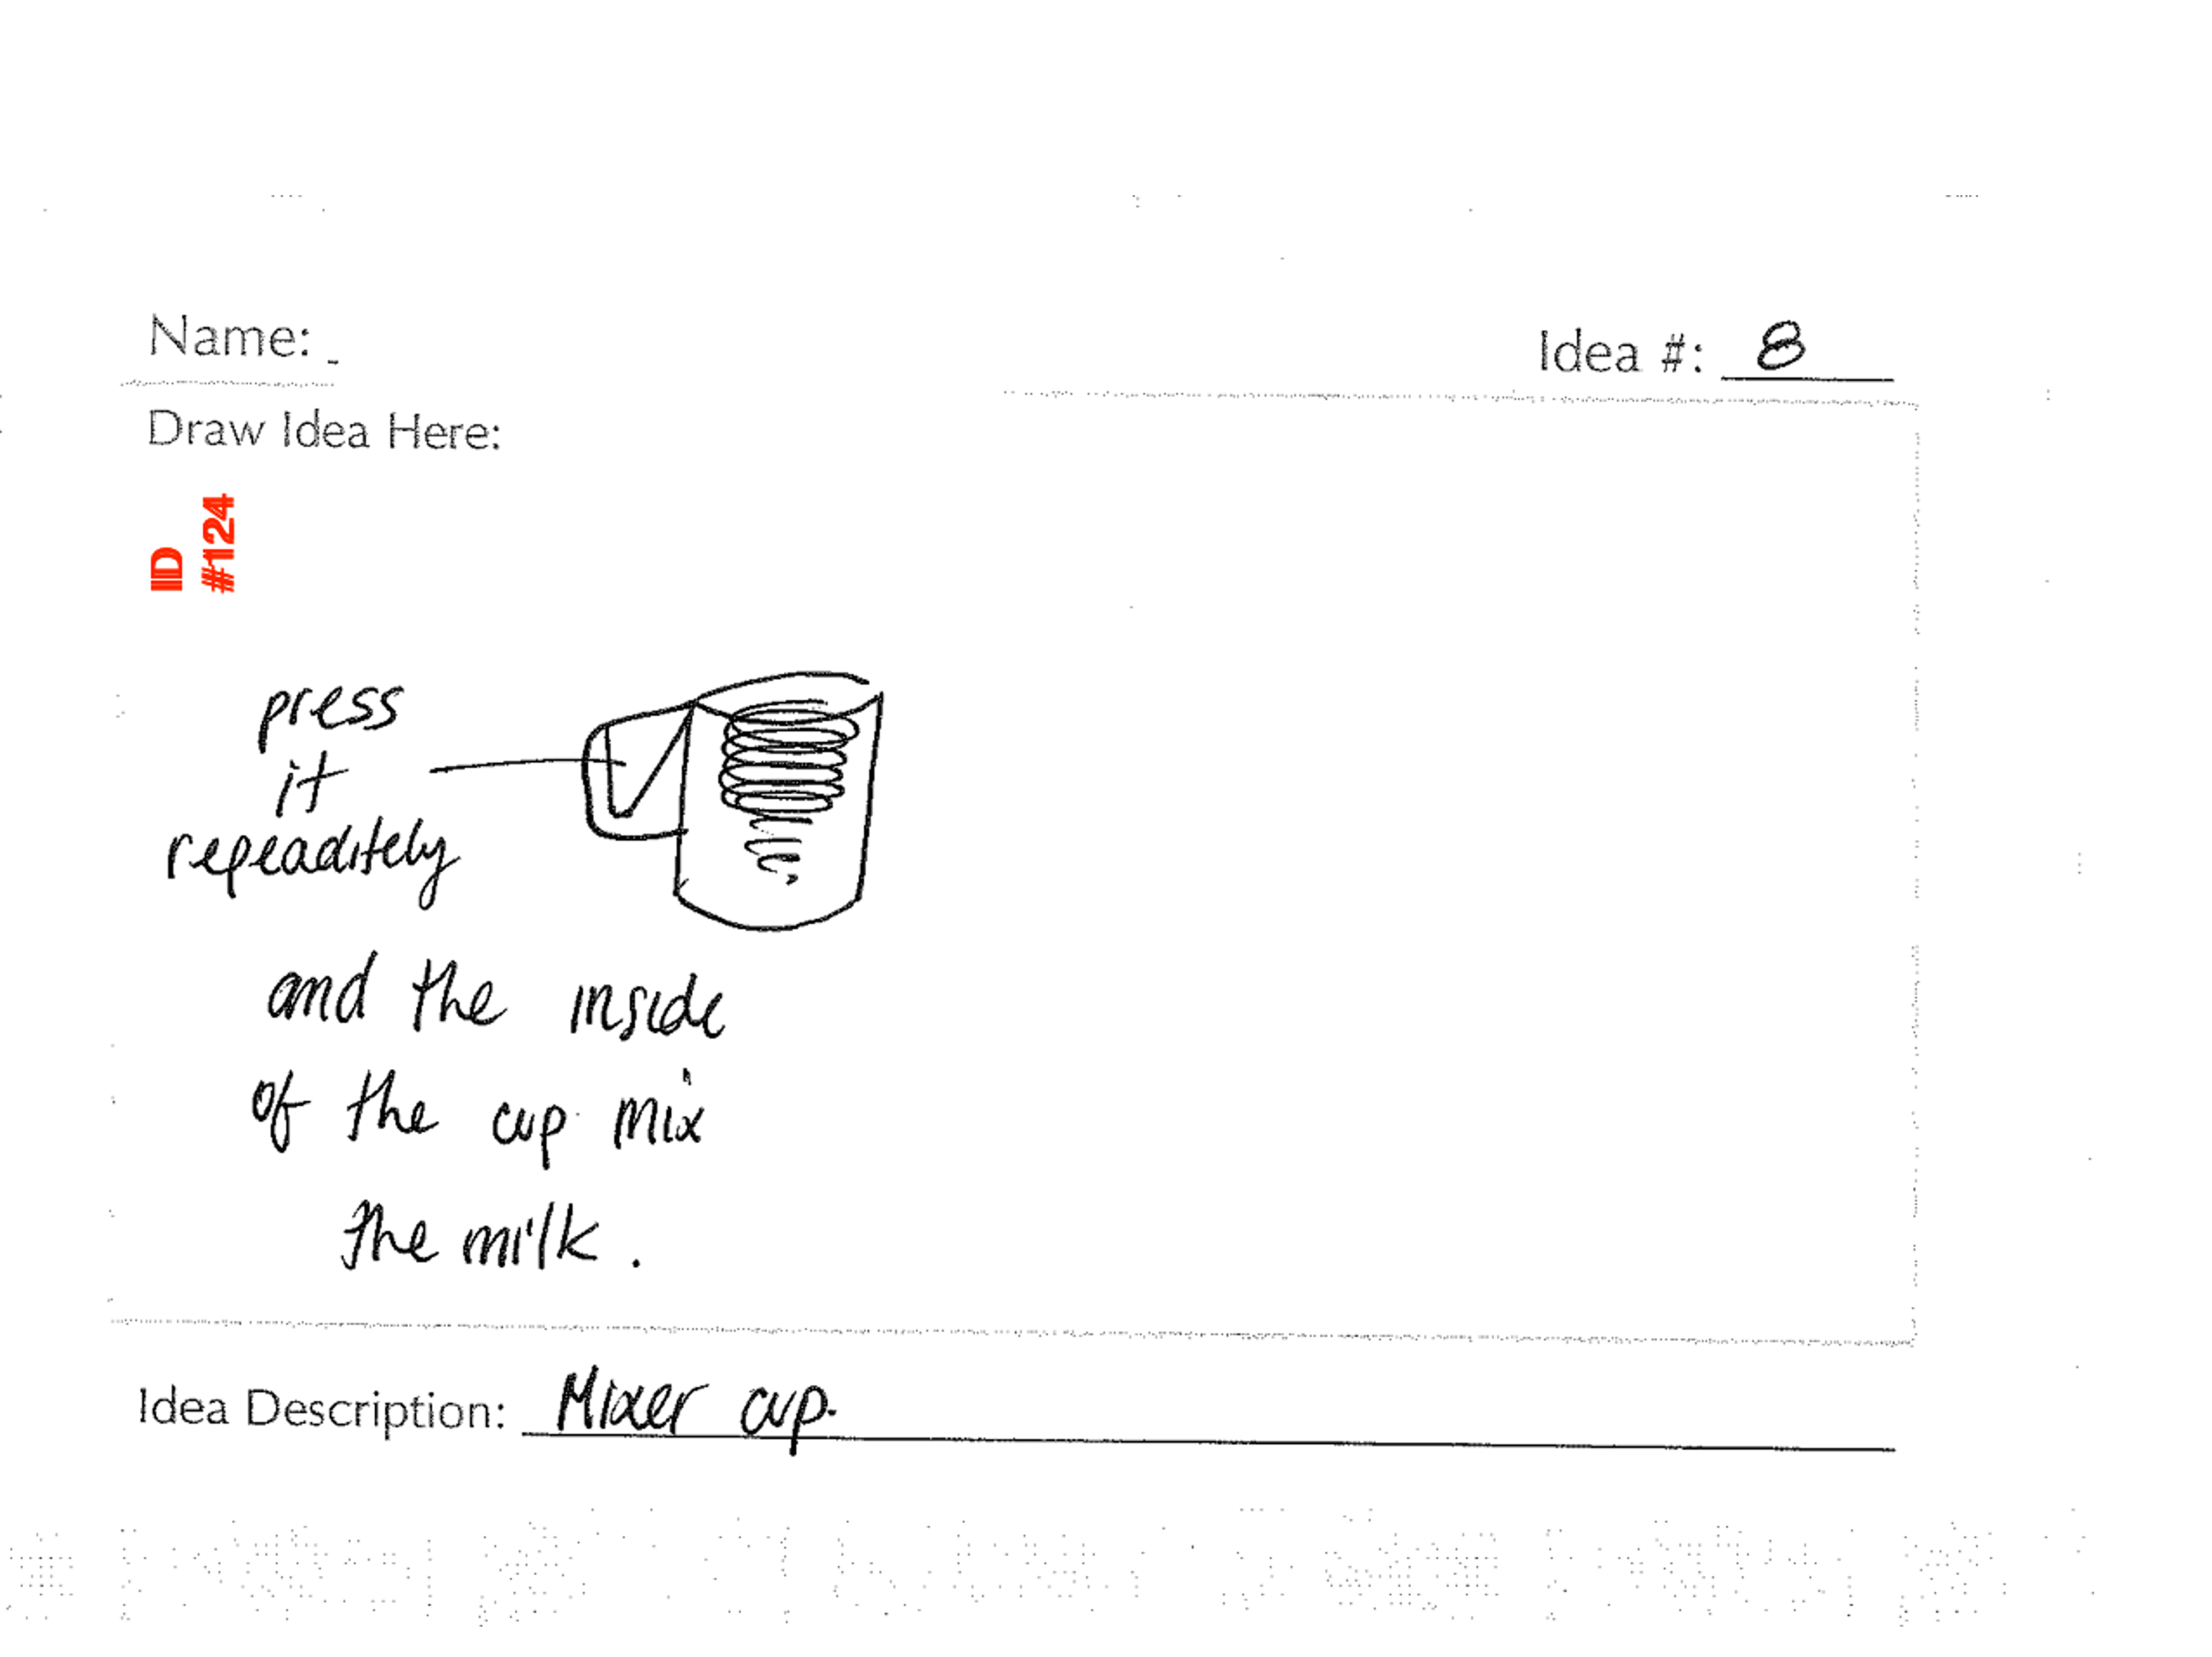 Name:
Idea #: 8
Draw Idea Here:
ID
#124
press
it
repeaditely
and the inside
of the cup mix
the milk.
Idea Description: Mixer cup.